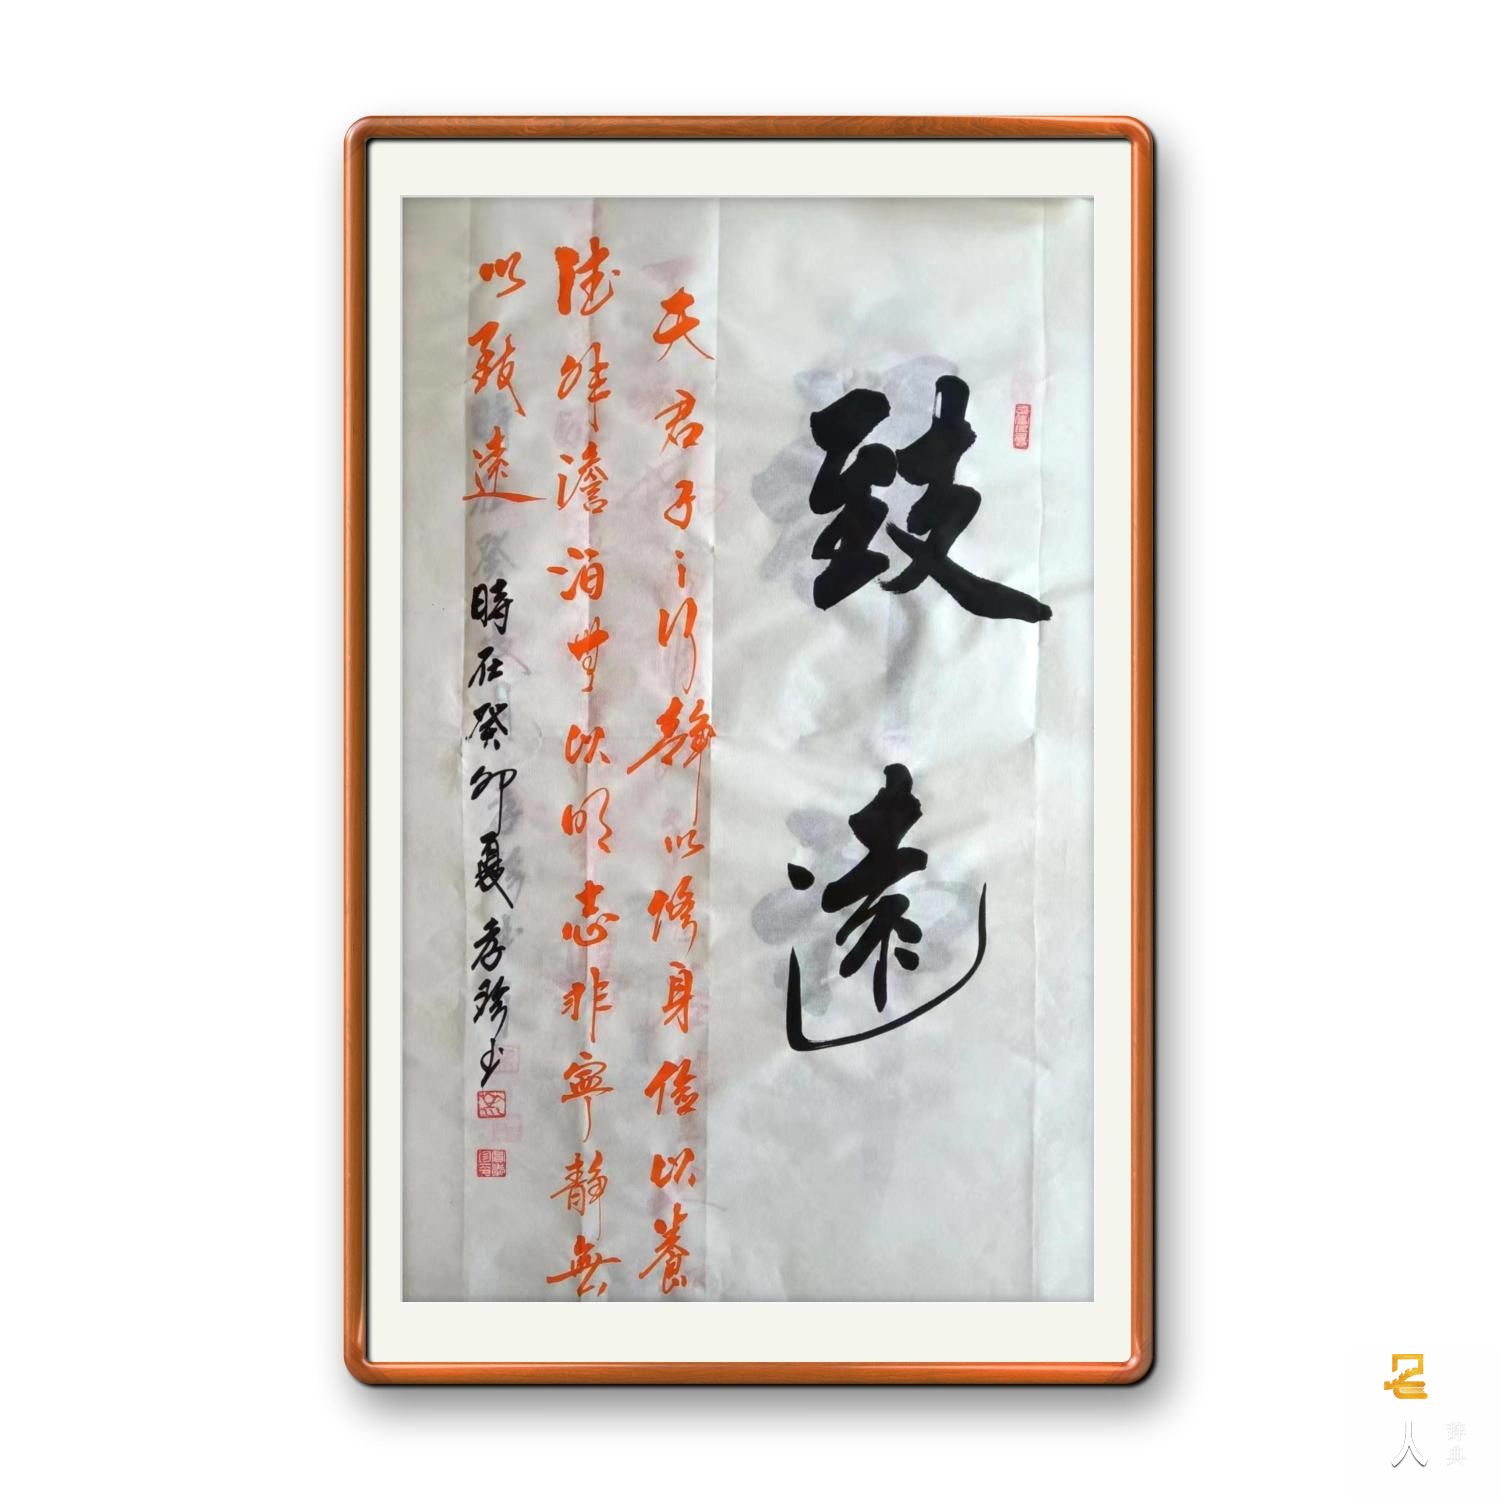 致遠
夫君子之行静以修身俭以養
德非澹泊無以明志非寧静無
以致遠
時在癸卯夏孝珍书
名人
辞典